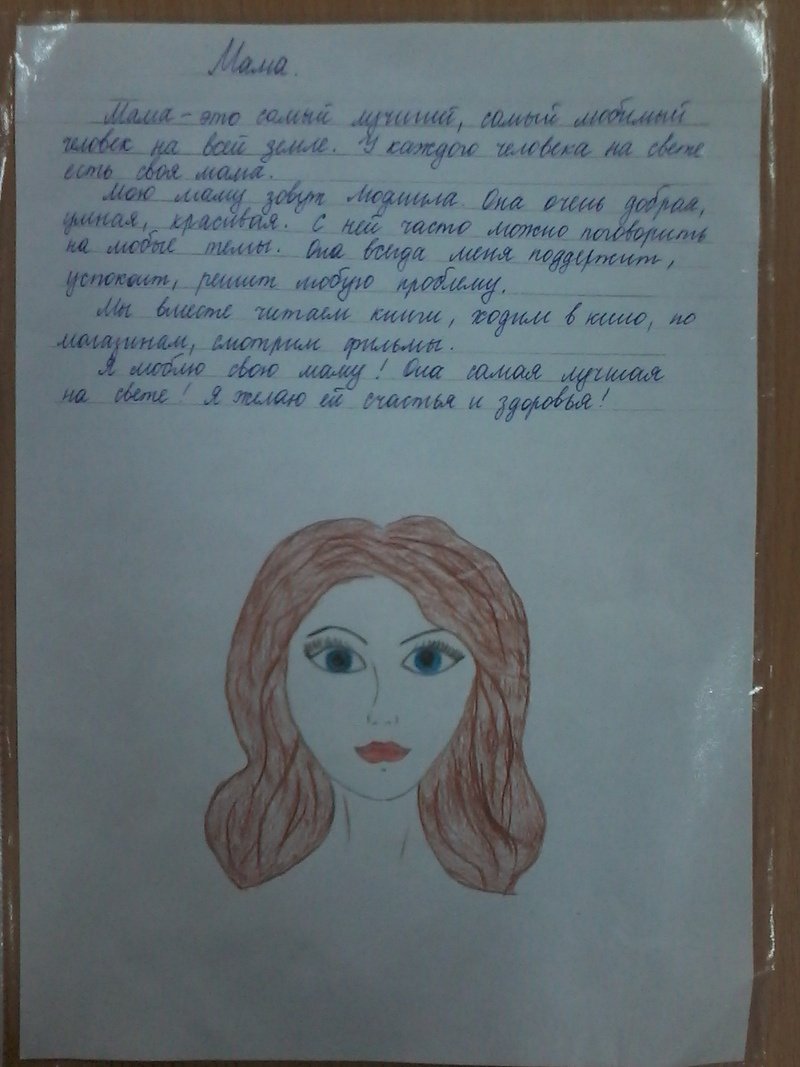 Мама.
Мама - это самый лучший, самый любимый
человек на всей земле. У каждого человека на свете
есть своя мама.
Мою маму зовут Людмила. Она очень добрая,
умная, красивая. С ней часто можно поговорить
на любые темы. Она всегда меня поддержит,
успокоит, решит любую проблему.
Мы вместе читаем книги, ходим в кино, по
магазинам, смотрим фильмы.
Я люблю свою маму! Она самая лучшая
на свете! Я желаю ей счастья и здоровья!